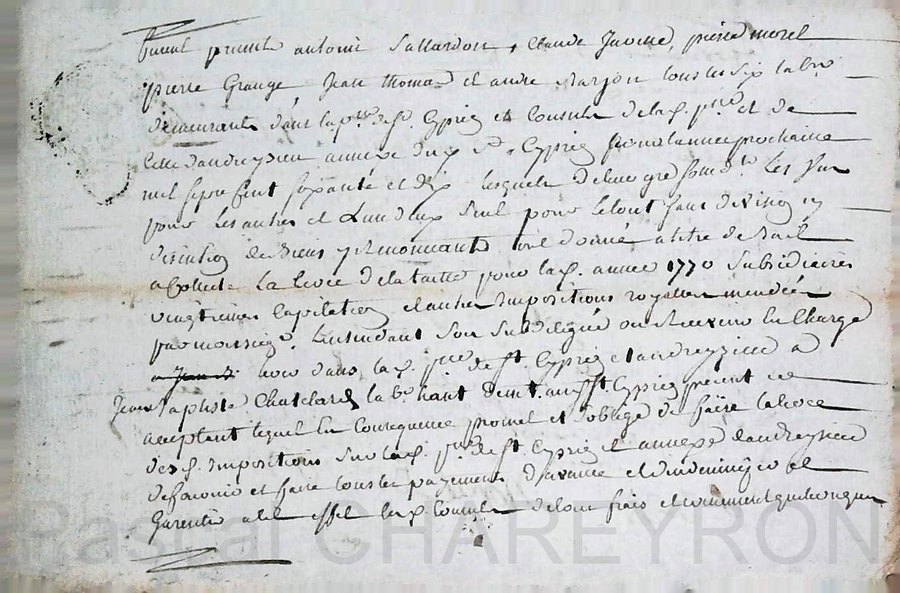 furent presents antoine Sallardon, Claude, pierre morel
pierre Grange Jean Thomas et andre tous les six lab.rs
demeurants dans la p.sse de s.t Cypriez et Consuls de la d. p.sse et de
celle dandrezieu annexe dud. s.t Cypriez pour lannee prochaine
mil sept Cent soixante et dix lesquels de leur gre solid.t les uns
pour les autres et Lun deux seul pour le tout sans division ny
discution de biens y Renoncants ont donné a titre de Bail
a Collecte La levée de la taille pour lad. année 1770 subsidiaires
vingtiemes Capitation et autres Impositions royalles mendées
par monseig.r Lintendant son subdelegué ou Receveur En Charge
dans lad. p.sse de s.t Cypriez et andrezieu a
Jean Baptiste Chatelard lab.r hant dem.t aud. s.t Cypriez present et
acceptant lequel En Consequence promet et soblige de faire la levée
desd. Impositions sur lad. p.sse de s.t Cypriez et annexe dandrezieu
et faire tous les payements davance et
Garentir a cet effet lesd. Consuls de tout frais et quelconques
Pascal CHAREYRON